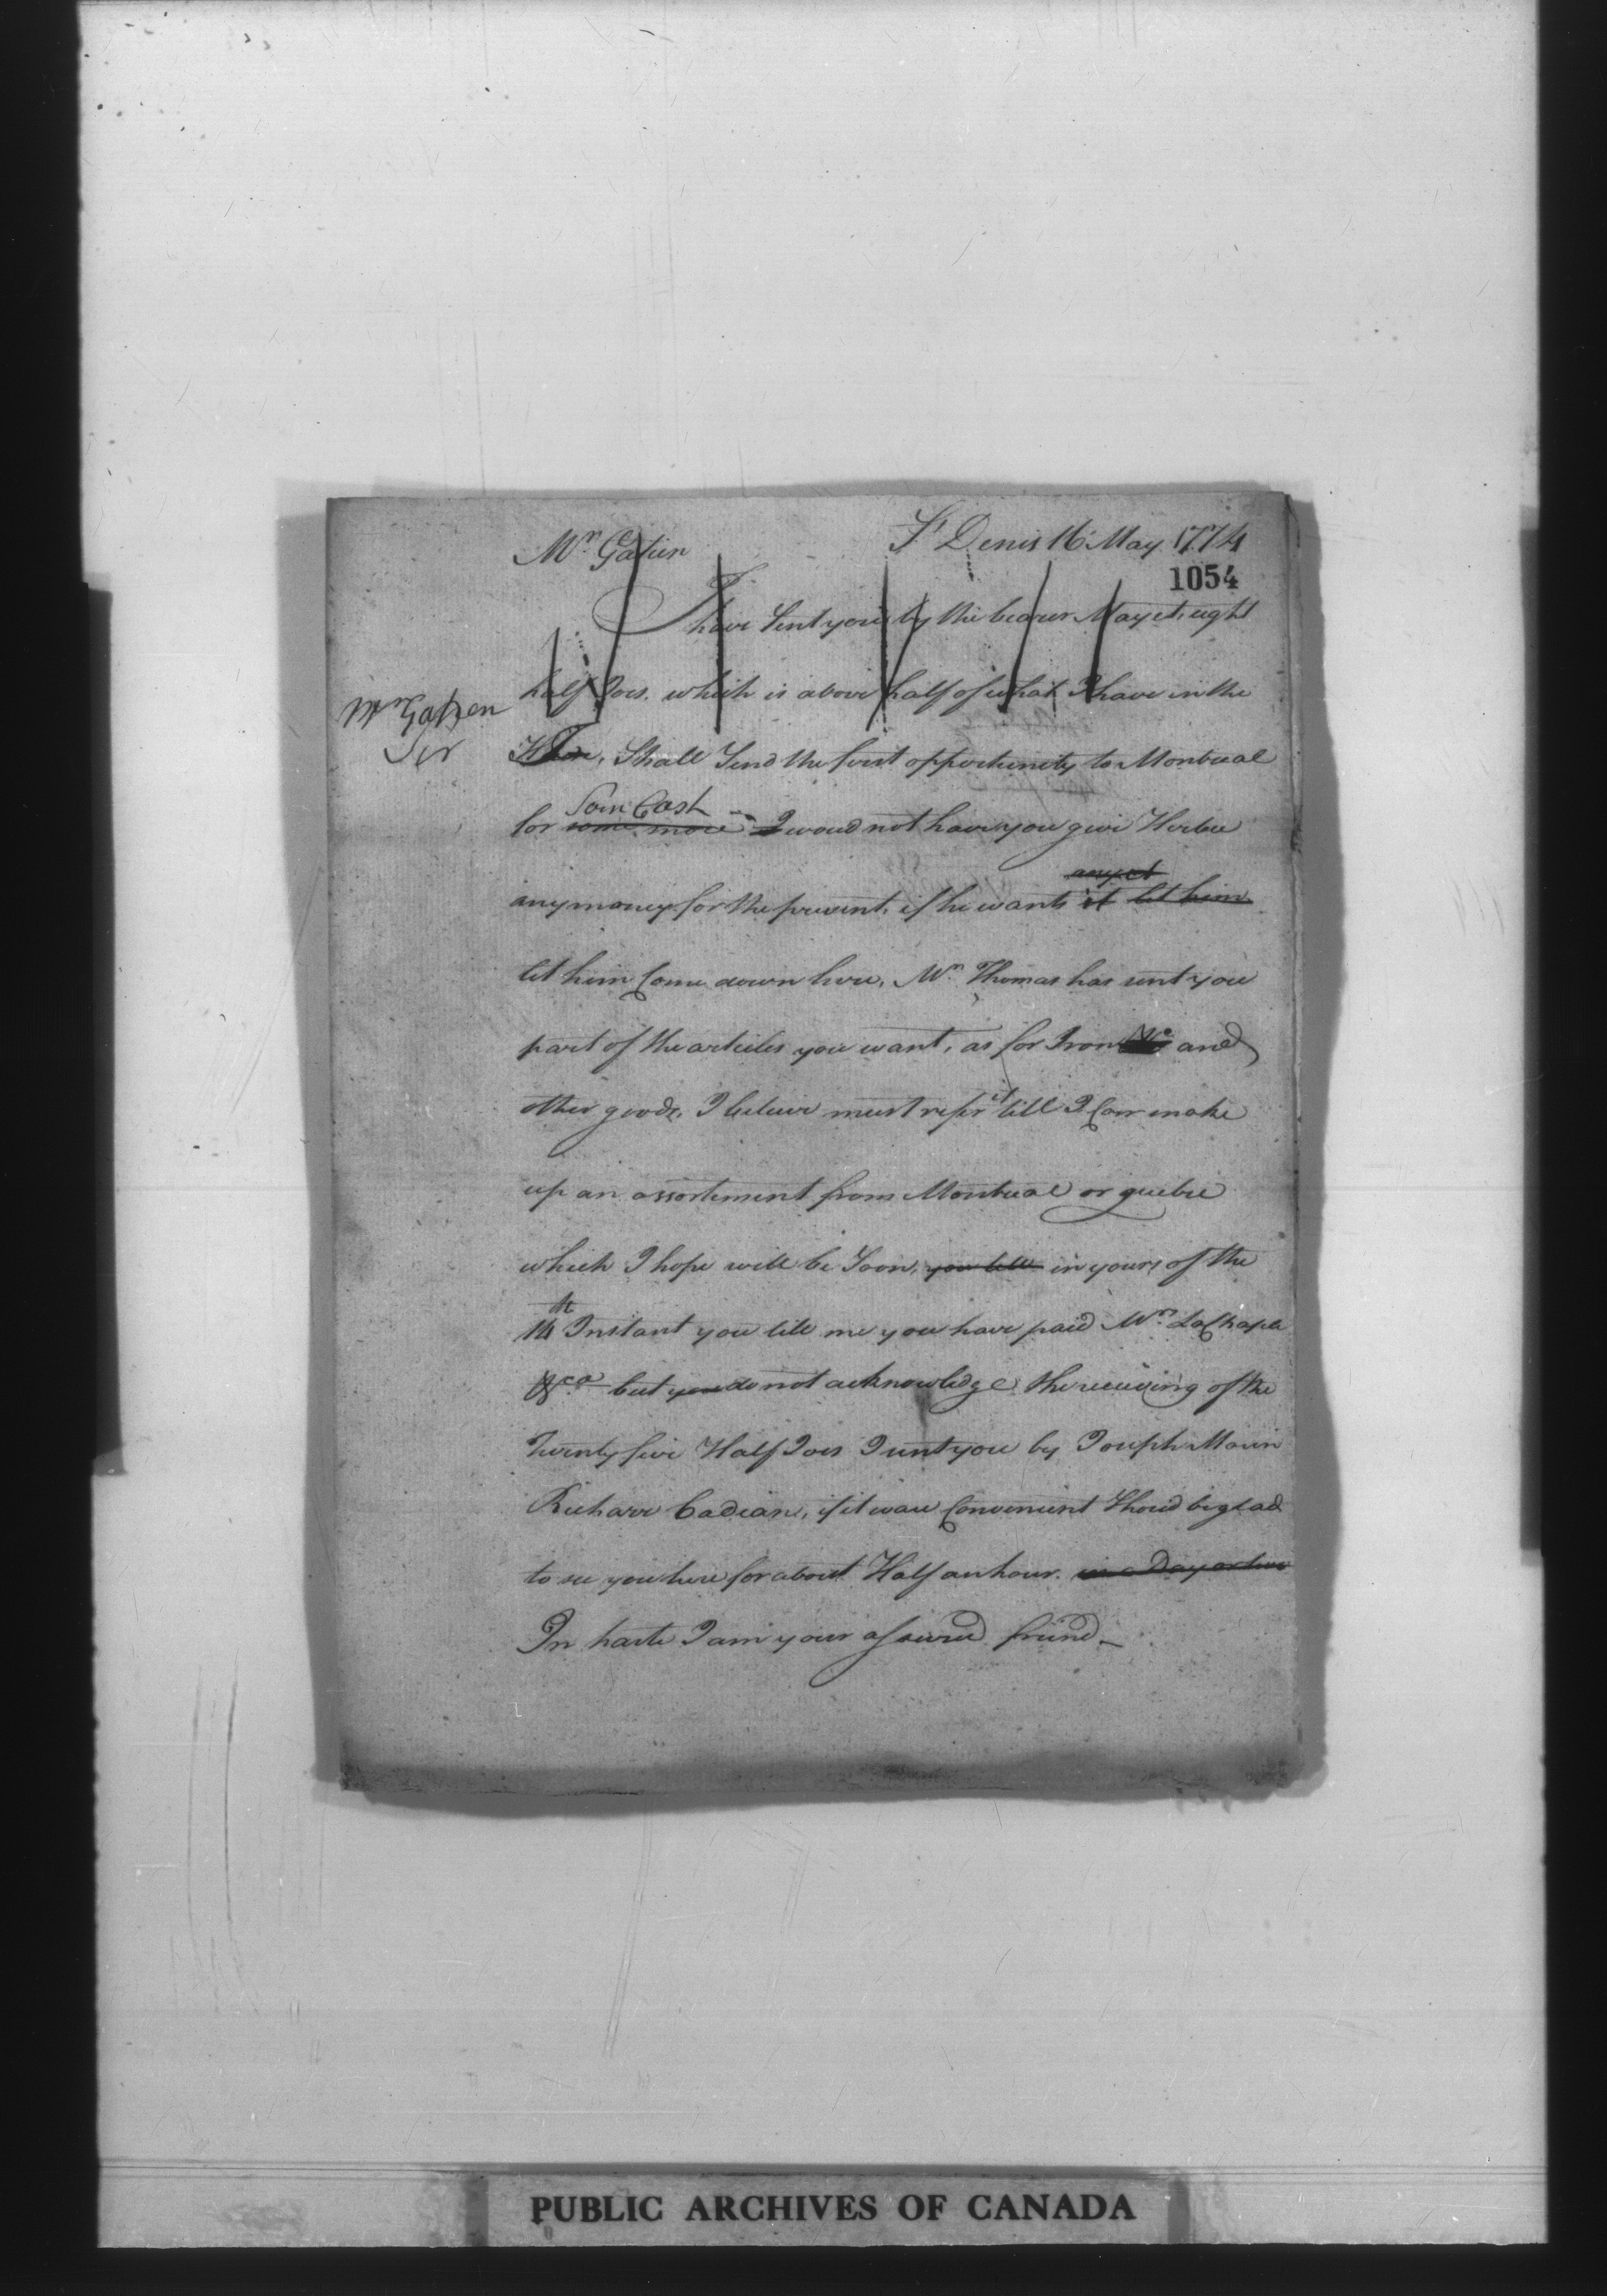 St Denis 16 May 1774
Mr. Gatien
1054
I have Sent you by the bearer Mayet, eight
half Joes. which is above half of what I have in the
Mr Gatien
Sir
I Shall Send the first opportunity to Montreal
Som Cash
for some more I woud not have you give
any et
any money for the present, if he wants it let him
let him Come down here, Mr. Thomas has sent you
part of the articles you want, as for Iron and
other goods, I beleive must refer it till I Can make
up an assortement from Montreal or quebec
which I hope will be Soon, you tell in yours of the
14th Instant you tell me you have paid Mr. LaChapel
&ca but you do not acknowledge the receiveing of the
Twenty five Half Joes I sent you by Joseph Morin
Cadian, if it ware Convenient Shoud be glad
to see you here for about Half an hour. in a Day or two
In haste I am your assured freind
PUBLIC ARCHIVES OF CANADA